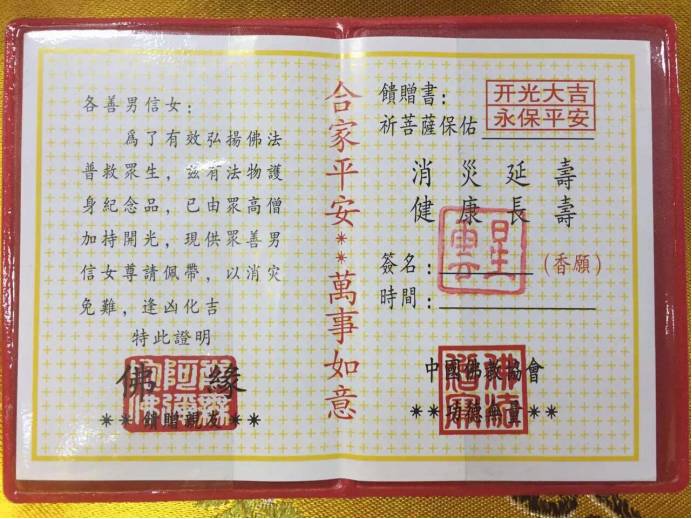 各善男信女：
為了有效弘揚佛法
普救眾生，茲有法物護
身紀念品，已由眾高僧
加持開光，現供眾善男
信女尊請佩帶，以消灾
免難，逢凶化吉
特此證明
佛緣
＊＊饋贈親友＊＊
合家平安＊＊萬事如意
饋贈書：
开光大吉
永保平安
祈菩薩保佑
消災延壽
健康長壽
星雲
簽名：（香願）
時間：
中國佛教協會
＊＊功德無量＊＊